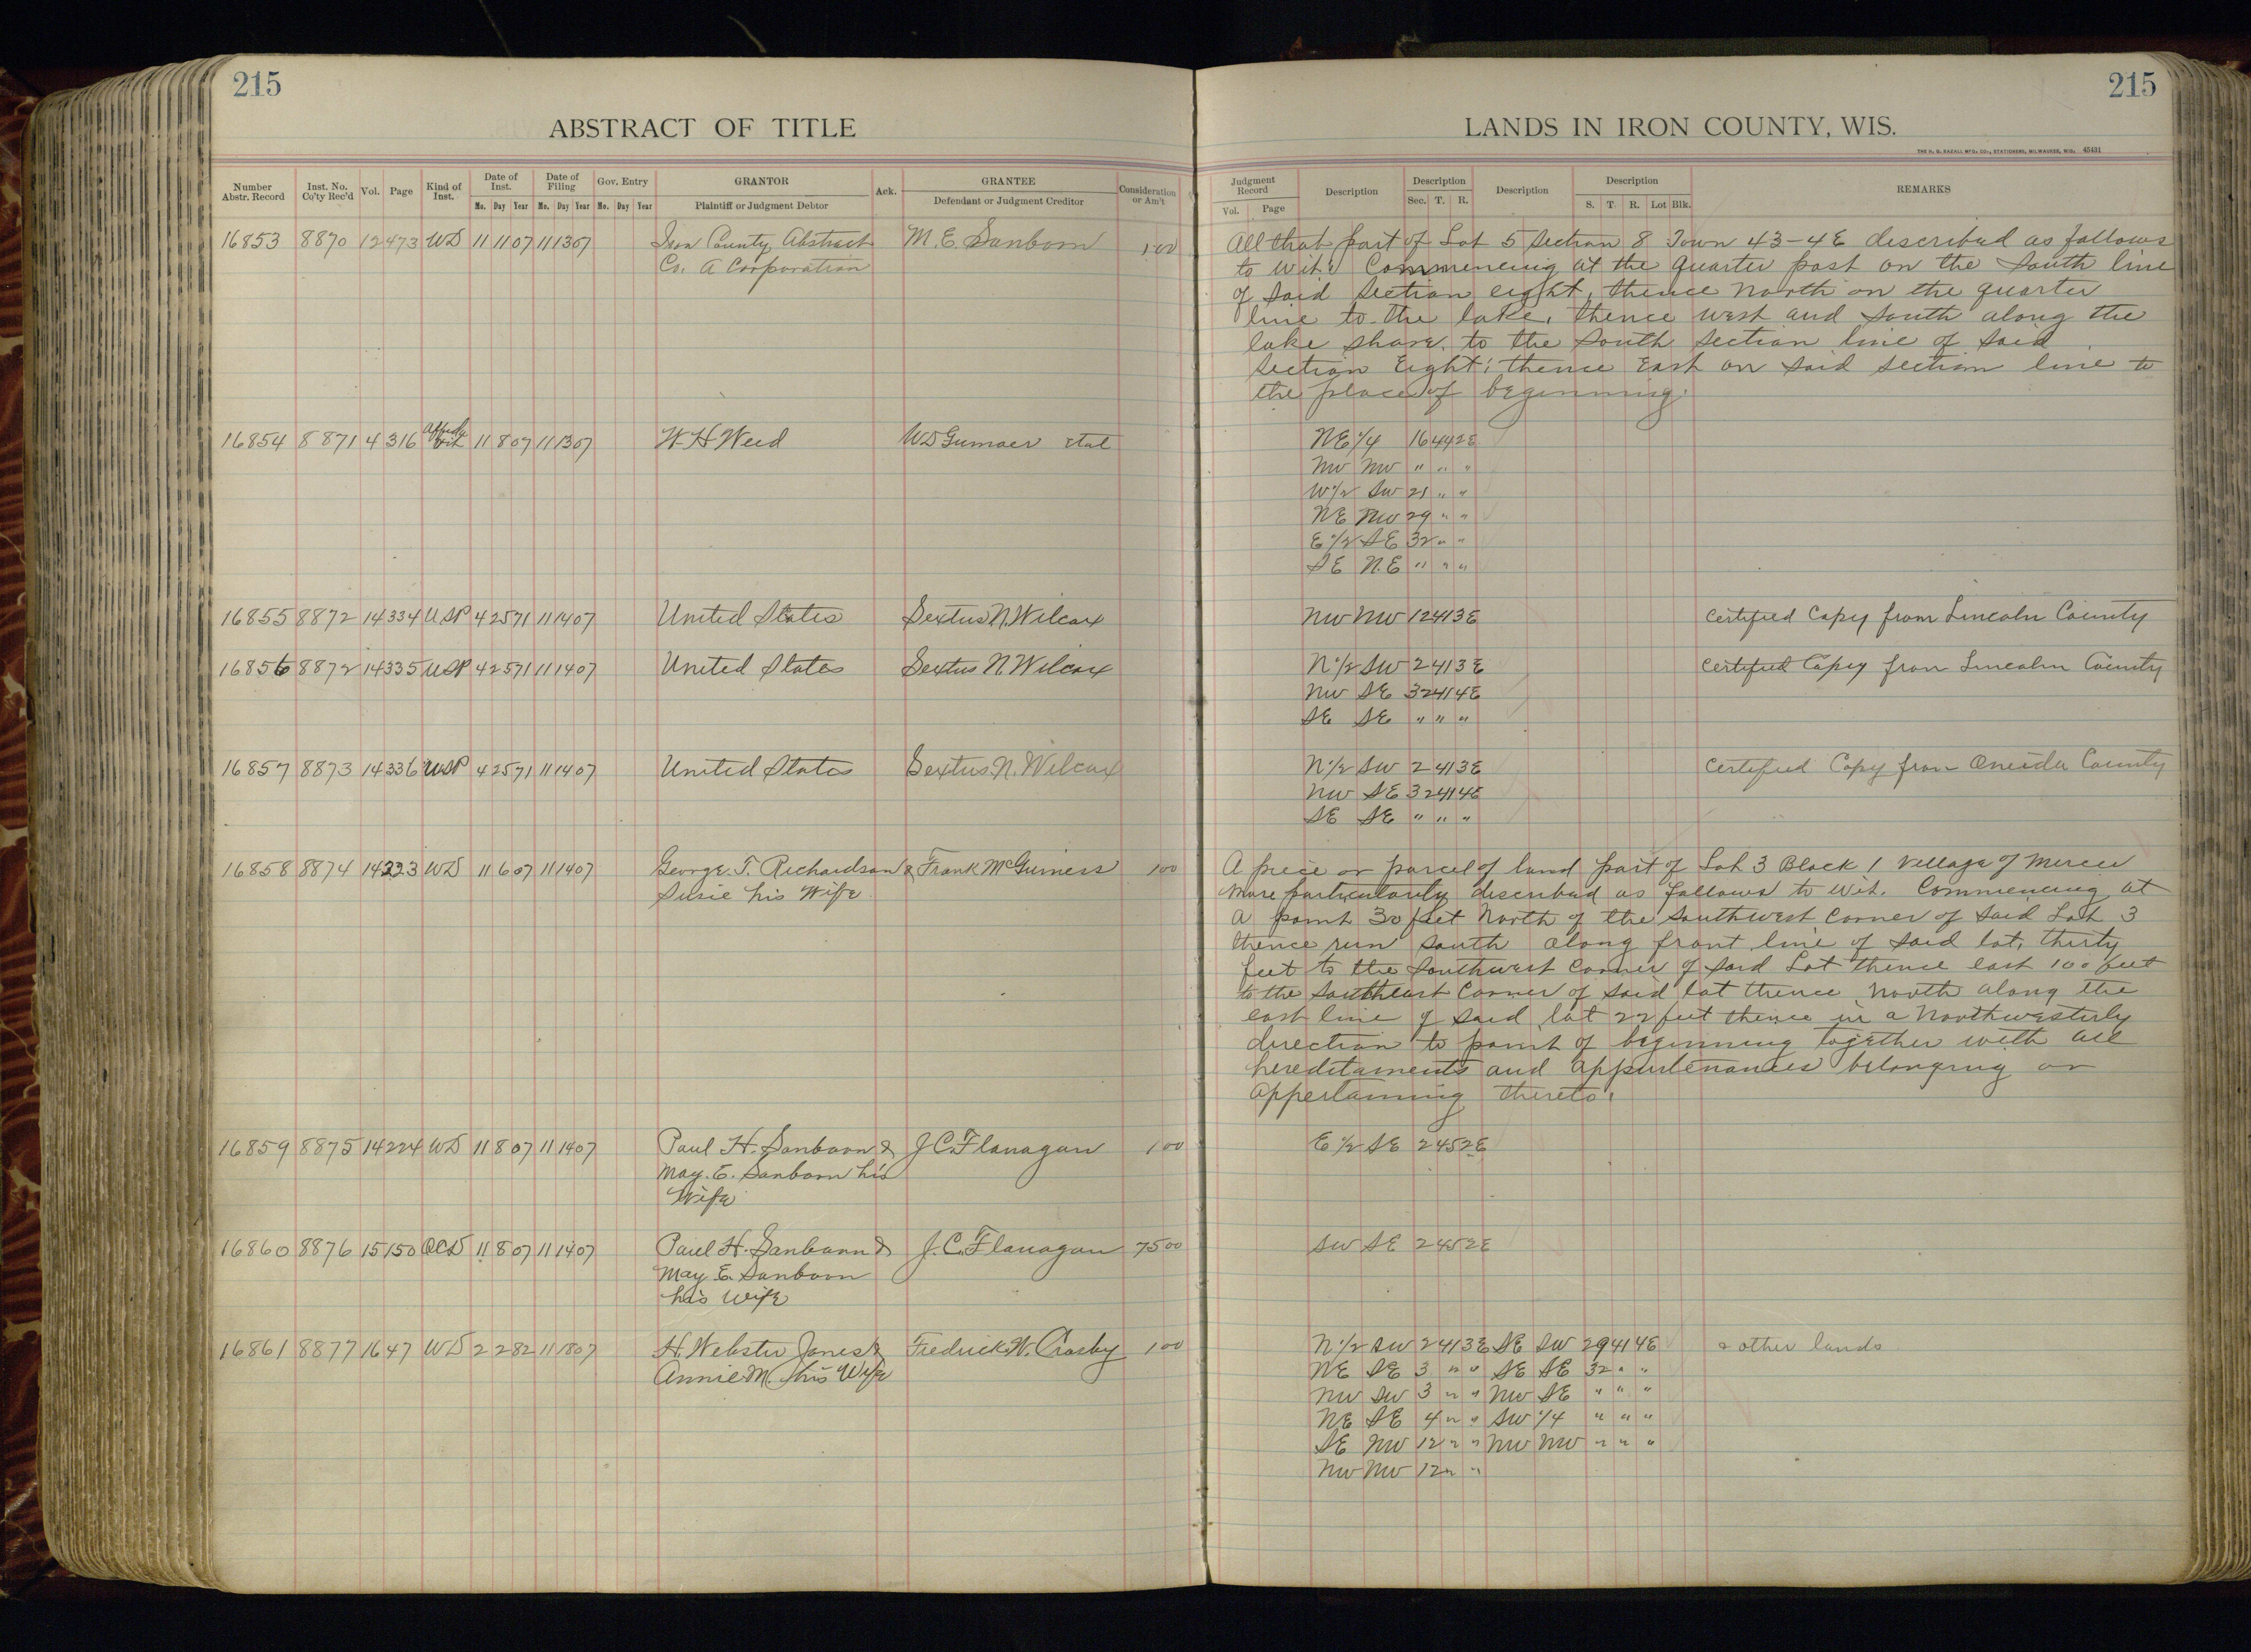 215
215
ABSTRACT OF TITLE
LANDS IN IRON COUNTY, WIS.
THE H. G. RAZALL MFG. CO., STATIONERS, MILWAUKEE, WIS. 45431
Number Abstr. Record | Inst. No. Co'ty Rec'd | Vol. | Page | Kind of Inst. | Date of Inst. Mo. Day Year | Date of Filing Mo. Day Year | Gov. Entry Mo. Day Year | GRANTOR Plaintiff or Judgment Debtor | Ack. | GRANTEE Defendant or Judgment Creditor | Consideration or Am't
Judgment Record Vol. Page | Description | Description Sec. T. R. | Description | Description S. T. R. Lot Blk. | REMARKS
16853 8870 12 473 WD 11 11 07 11 13 07 Iron County Abstract M. E. Sanborn 1 00
Co. A Corporation
All that part of Lot 5 Section 8 Town 43-4E described as follows
to wit: Commencing at the quarter post on the South line
of said Section eight, thence North on the quarter
line to the lake, thence west and south along the
lake shore to the South Section line of said
Section Eight; thence East on said section line to
the place of beginning.
16854 8871 4 316 Affidavit 11 8 07 11 13 07 W H Weed W D Gumaer et al
NE 1/4 16 44 2E
NW NW " " "
W 1/2 SW 21 " "
NE NW 29 " "
E 1/2 SE 32 " "
SE N.E " " "
16855 8872 14 334 USP 4 25 71 11 14 07 United States Sextus N. Wilcox NW NW 12 41 3E Certified Copy from Lincoln County
16856 8872 14 335 USP 4 25 71 11 14 07 United States Sextus N. Wilcox N 1/2 SW 2 41 3E Certified Copy from Lincoln County
NW SE 32 41 4E
SE SE " " "
16857 8873 14 336 USP 4 25 71 11 14 07 United States Sextus N. Wilcox N 1/2 SW 2 41 3E Certified Copy from Oneida County
NW SE 32 41 4E
SE SE " " "
16858 8874 14 223 WD 11 6 07 11 14 07 George T. Richardson & Frank McGuiness 1 00
Susie his Wife
A piece or parcel of land part of Lot 3 Block 1 Village of Mercer
more particularly described as follows to wit. Commencing at
a point 30 feet North of the Southwest Corner of said Lot 3
thence run south along front line of said lot, thirty
feet to the Southwest Corner of said Lot thence east 100 feet
to the Southeast Corner of said lot thence North along the
east line of said lot 22 feet thence in a Northwesterly
direction to point of beginning together with all
hereditaments and appurtenances belonging or
appertaining thereto.
16859 8875 14 224 WD 11 8 07 11 14 07 Paul H. Sanborn & J. C. Flanagan 1 00 E 1/2 SE 2 45 2E
May. E. Sanborn his
Wife
16860 8876 15 150 QCD 11 8 07 11 14 07 Paul H. Sanborn & J. C. Flanagan 75 00 SW SE 2 45 2E
May E. Sanborn
his Wife
16861 8877 16 47 WD 2 2 82 11 18 07 H. Webster Jones & Fredrick W. Crosby 1 00 N 1/2 SW 2 41 3E SE SW 29 41 4E & other lands
Annie M. his Wife NE SE 3 " " SE SE 32 " "
NW SW 3 " " NW SE " " "
NE SE 4 " " SW 1/4 " " "
SE NW 12 " " NW NW " " "
NW NW 12 " "